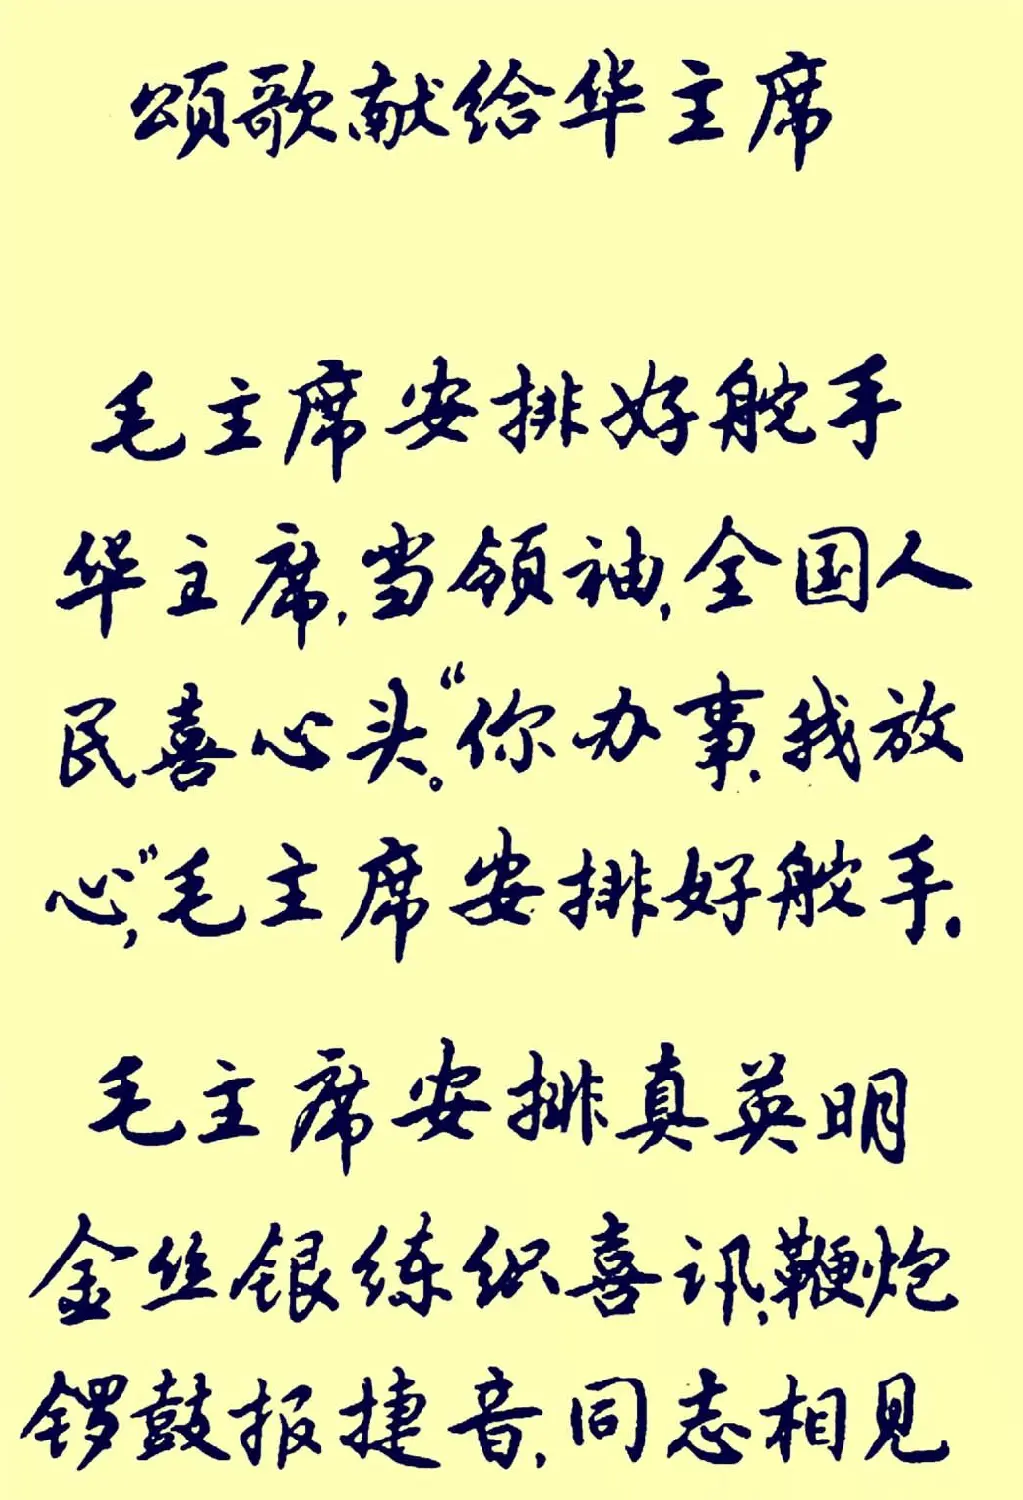 颂歌献给华主席
毛主席安排好舵手
华主席，当领袖，全国人
民喜心头。“你办事，我放
心”，毛主席安排好舵手.
毛主席安排真英明
金丝银练织喜讯，鞭炮
锣鼓报捷音，同志相见